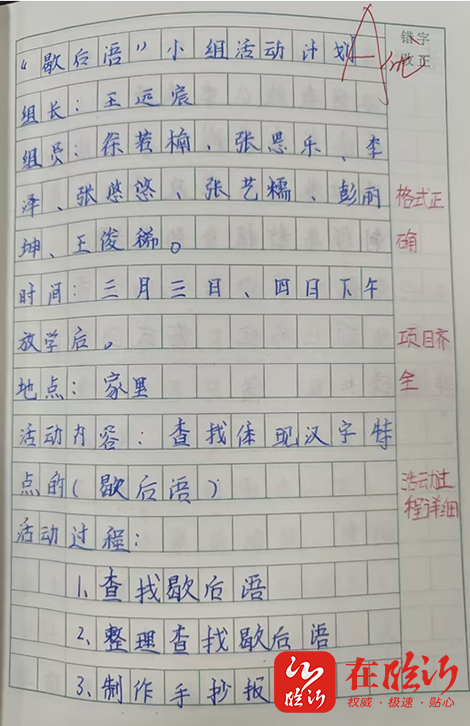 “歇后语”小组活动计划
错字
改正
组长：王远宸
组员：徐若楠、张恩乐、李
泽、张悠悠、张艺糯、彭丽
格式正
坤、王俊稀。
确
时间：三月三日、四日下午
放学后。
项目齐
地点：家里
全
活动内容：查找体现汉字特
点的(歇后语)
活动过
程详细
活动过程：
1、查找歇后语
2、整理查找歇后语
3、制作手抄报
在临沂
临沂
权威·极速·贴心